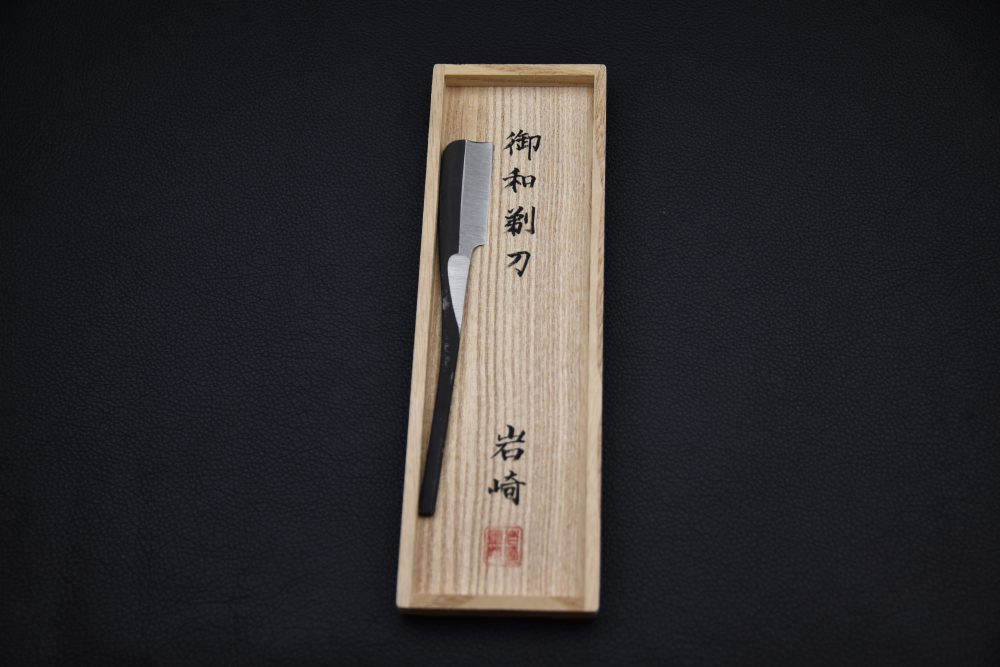 御和剃刀
岩崎